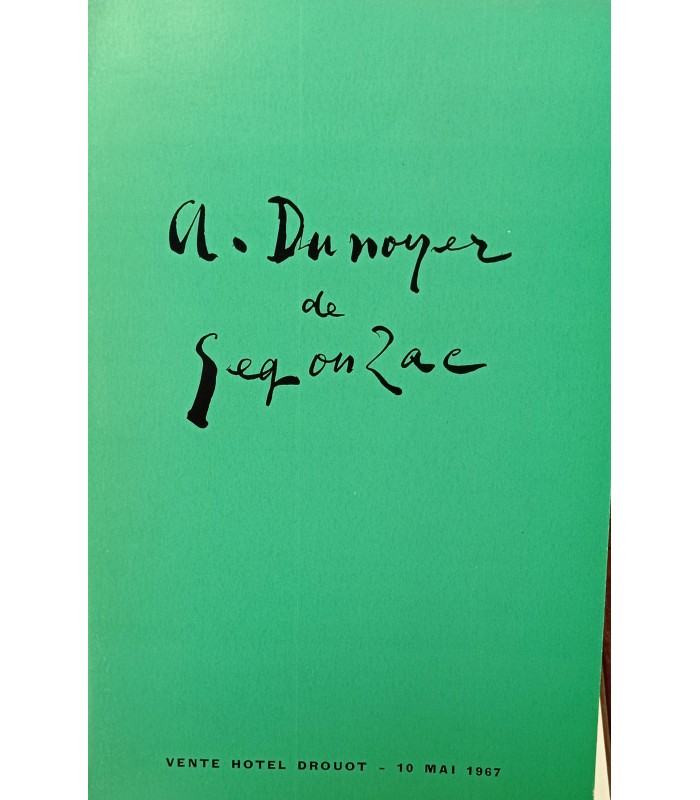 A. Dunoyer
de
Segonzac
VENTE HOTEL DROUOT - 10 MAI 1967